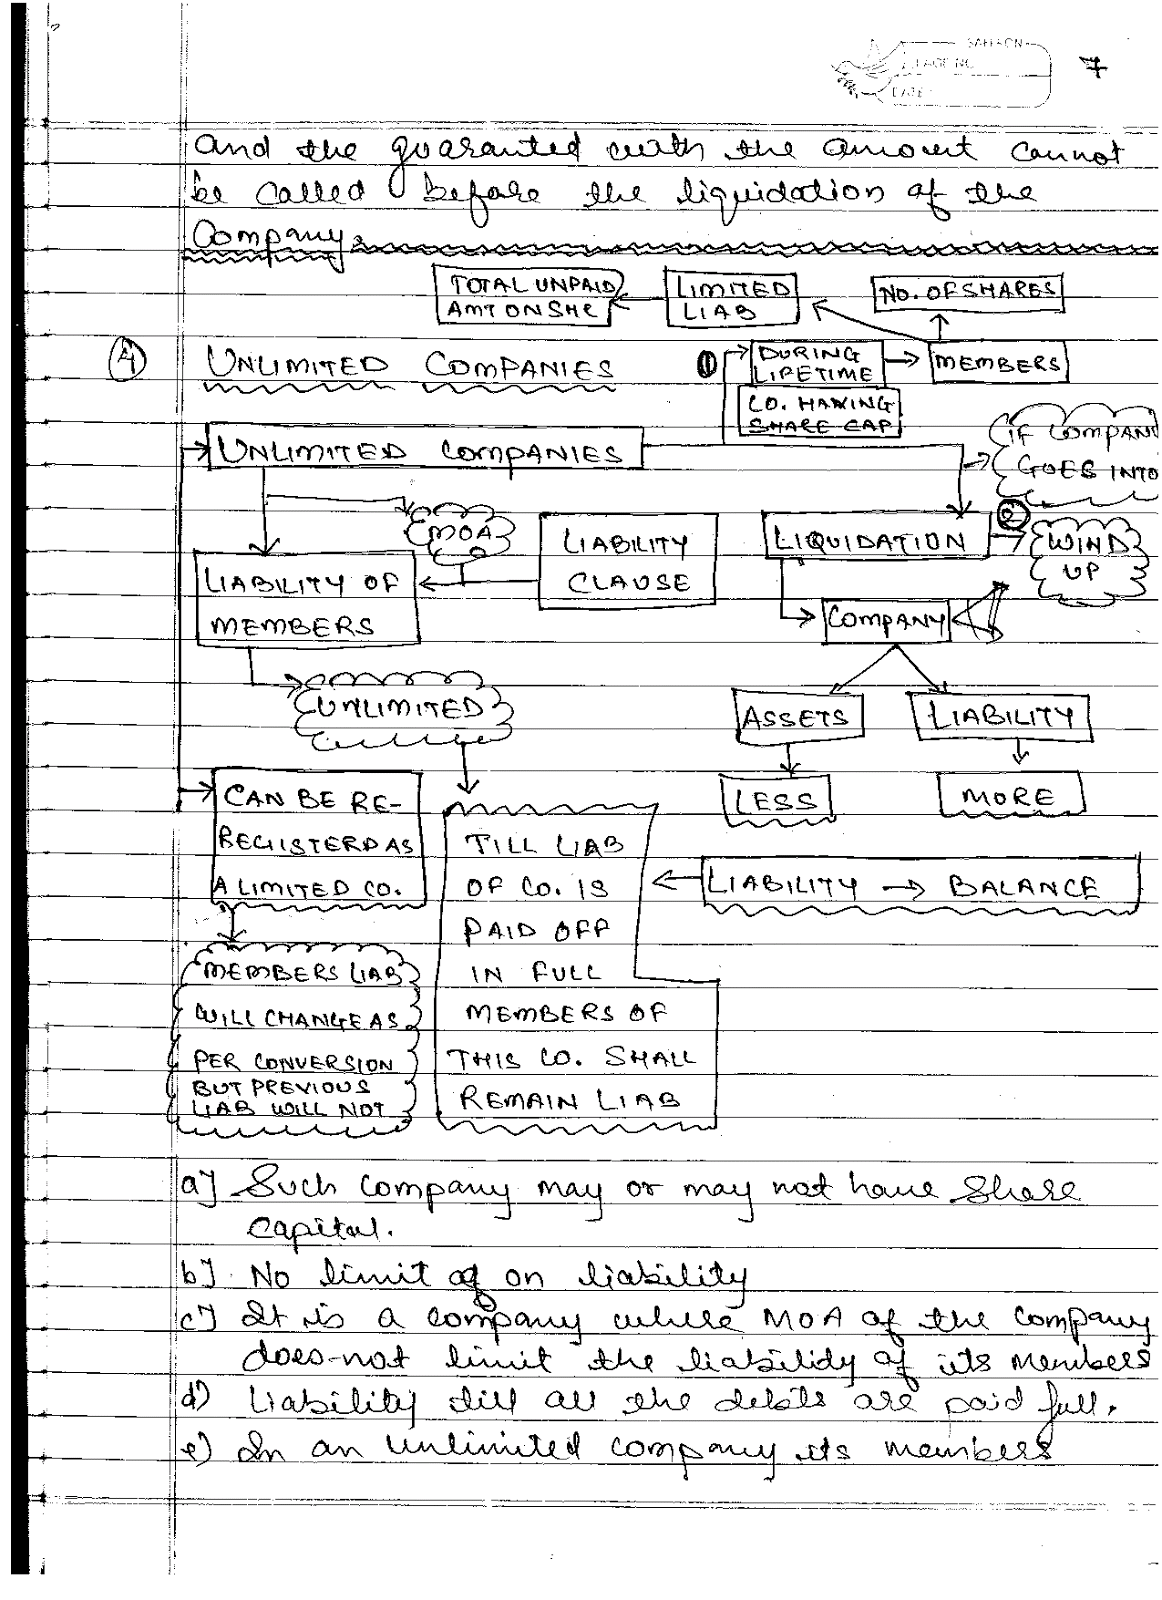 SAFFRON
PAGE NO.
DATE:
7
and the guaranted with the amount cannot
be called before the liquidation of the
Company.
TOTAL UNPAID
AMT ON SHE
LIMITED
LIAB
NO. OF SHARES
4
UNLIMITED COMPANIES
1
DURING
LIFETIME
MEMBERS
CO. HAVING
SHARE CAP
UNLIMITED COMPANIES
IF COMPANY
GOES INTO
MOA
LIABILITY
CLAUSE
LIQUIDATION
2
WIND
UP
LIABILITY OF
MEMBERS
COMPANY
UNLIMITED
ASSETS
LIABILITY
LESS
MORE
CAN BE RE-
REGISTERD AS
A LIMITED CO.
TILL LIAB
OF CO. IS
PAID OFF
IN FULL
MEMBERS OF
THIS CO. SHALL
REMAIN LIAB
LIABILITY → BALANCE
MEMBERS LIAB
WILL CHANGE AS
PER CONVERSION
BUT PREVIOUS
LIAB WILL NOT
a] Such company may or may not have Share
Capital.
b] No limit on liability
c] It is a company where MOA of the company
does-not limit the liability of its members
d) Liability till all the debts are paid full.
e) In an unlimited company its members